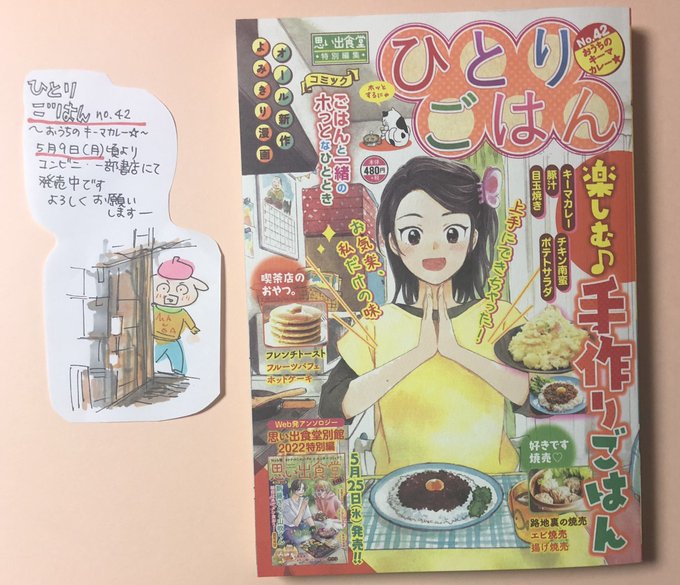 ひとり
ごはん no.42
～おうちのキーマカレー☆～
5月9日(月)頃より
コンビニ・一部書店にて
発売中です
よろしくお願い
します―
思い出食堂
特別編集
ひとり
ごはん
No.42
おうちの
キーマ
カレー★
オール新作
よみきり漫画
コミック
ごはんと一緒の
ホッとなひととき
ホッと
するにゃ
本体
480円
+税
楽しむ♪
手作りごはん
キーマカレー
豚汁
目玉焼き
チキン南蛮
ポテトサラダ
上手にできちゃった!
お気楽、
私だけの味
喫茶店の
おやつ。
フレンチトースト
フルーツパフェ
ホットケーキ
Web発アンソロジー
思い出食堂別館
2022特別編
思い出食堂
5月25日(水)発売!!
好きです
焼売♡
路地裏の焼売
エビ焼売
揚げ焼売